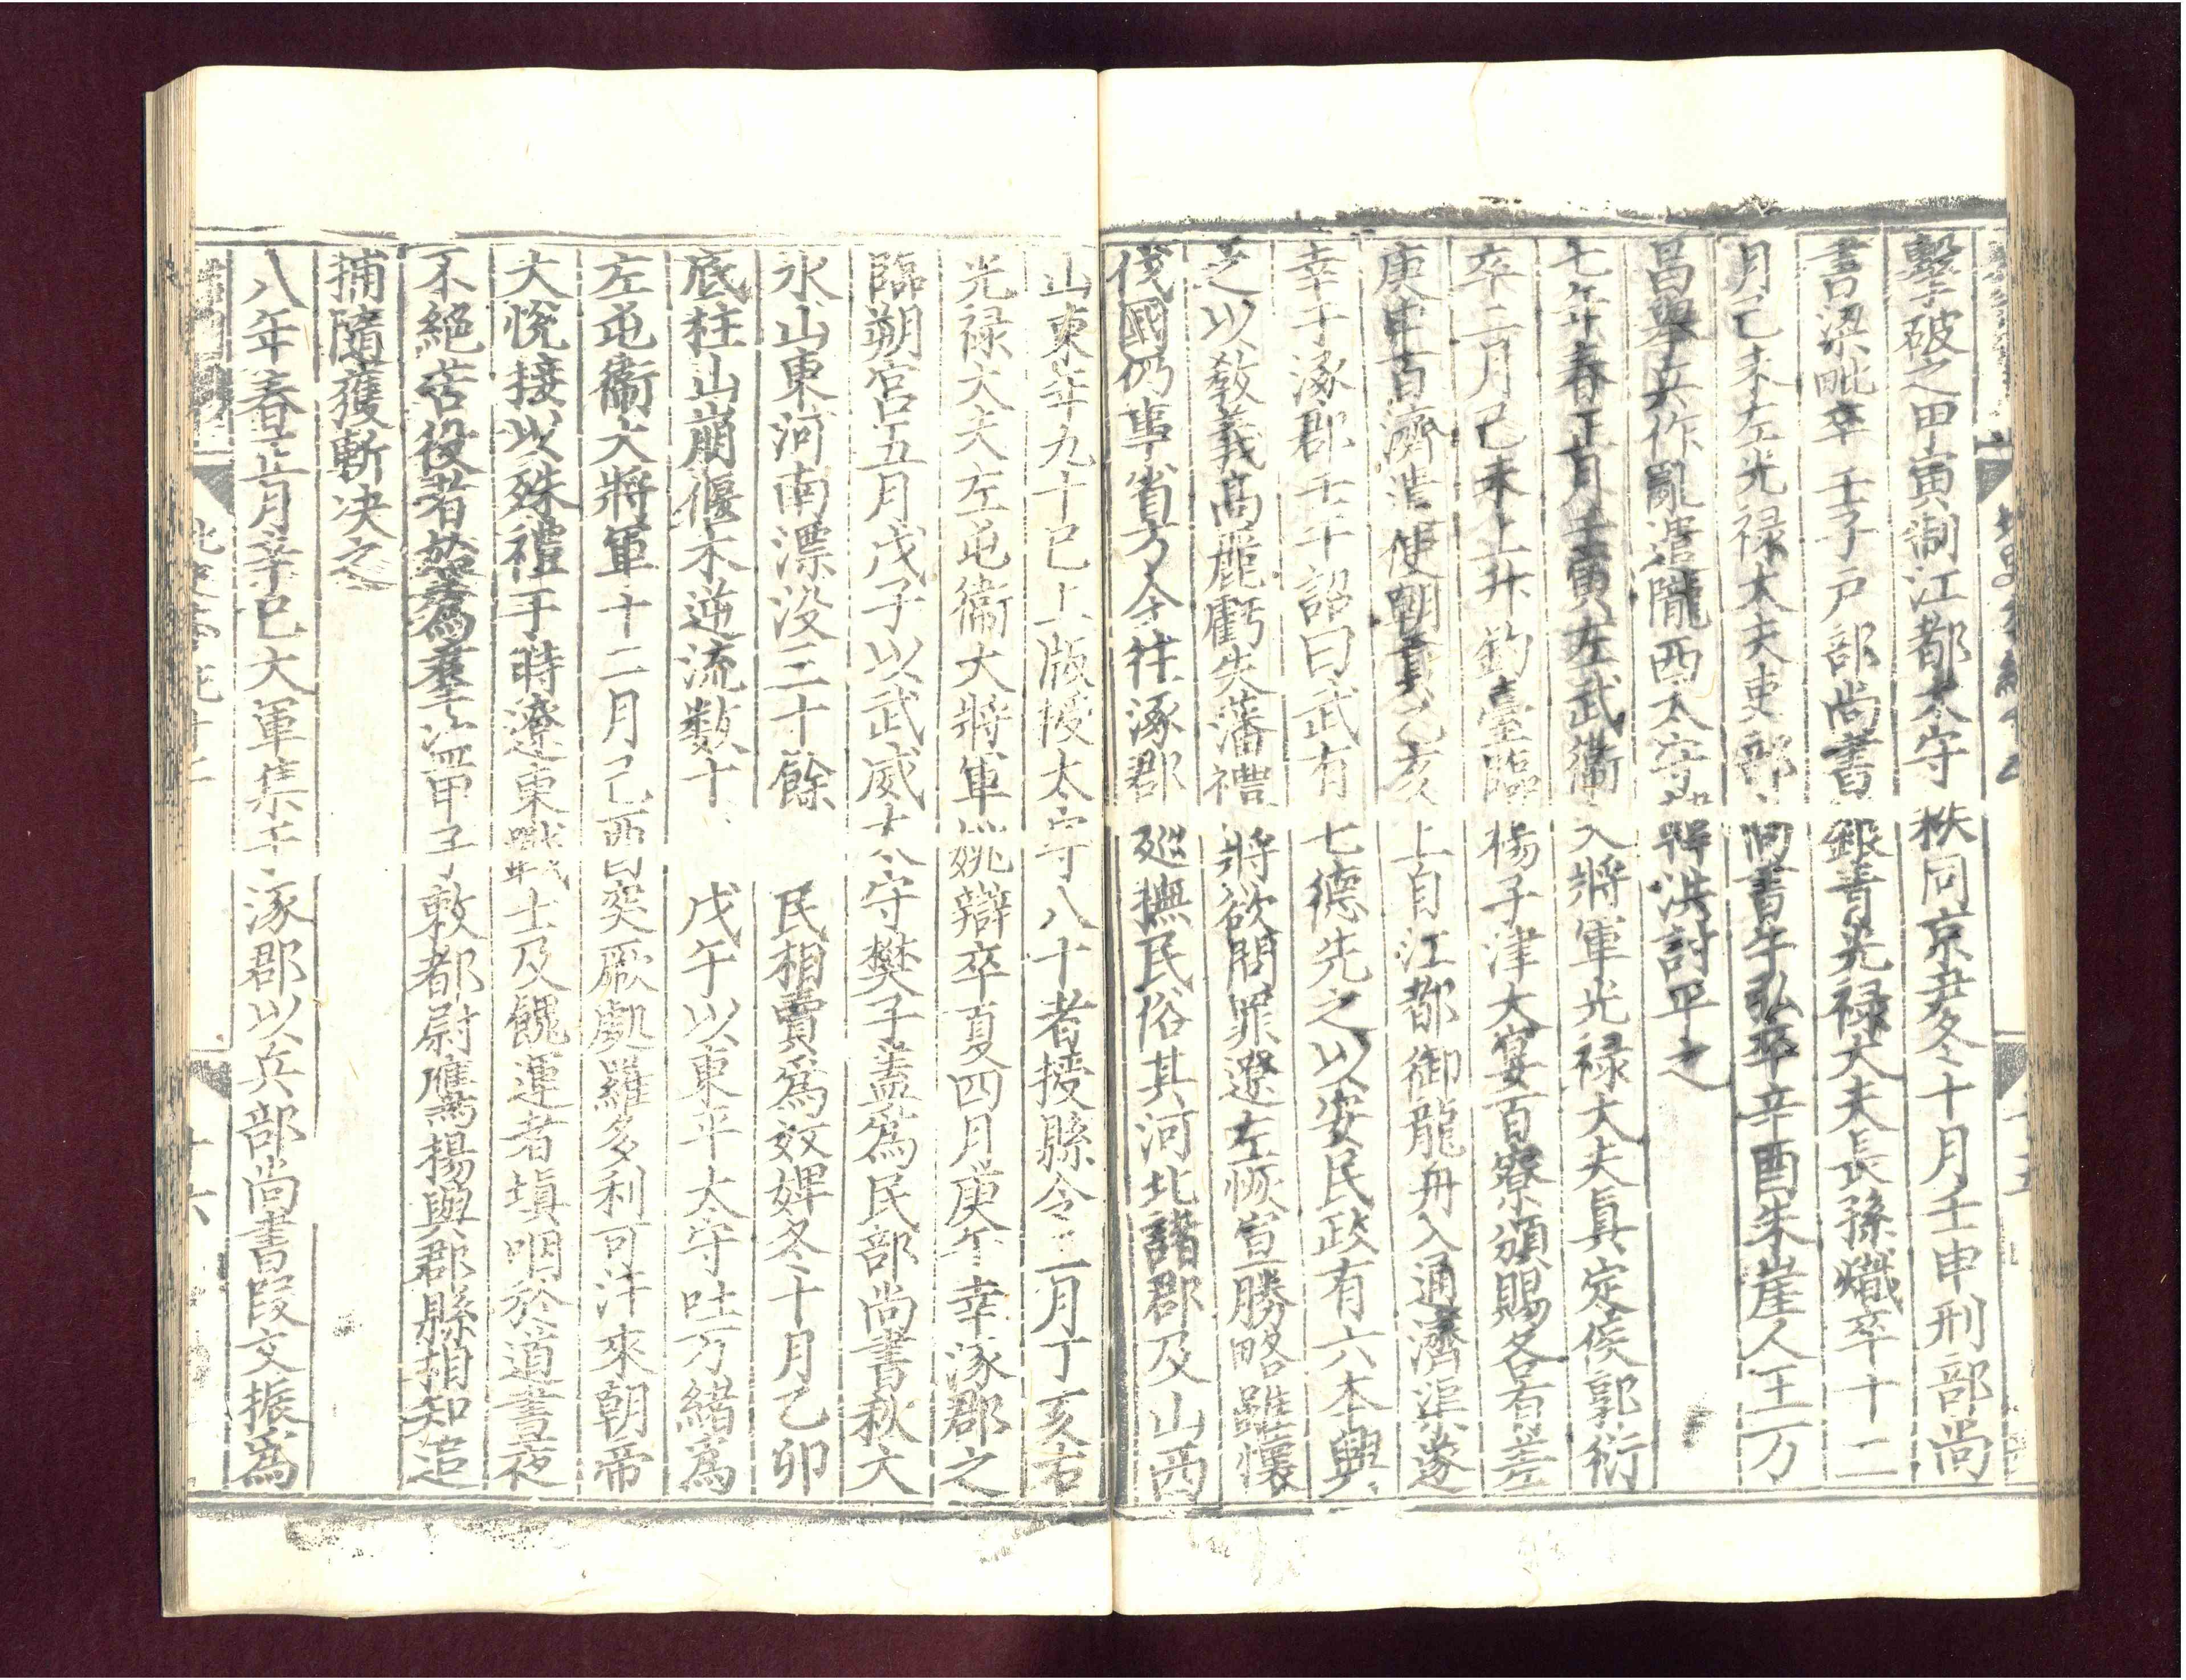 擊破之甲寅制江都太守秩同京尹冬十月壬申刑部尚
書梁毗卒壬子戶部尚書銀青光禄大夫長孫熾卒十二
月己未左光禄大夫吏部尚書牛弘卒辛酉朱崖人王万
昌舉兵作亂遣隴西太守韓洪討平之
七年春正月壬寅左武衞大將軍光禄大夫真定侯郭衍
卒二月己未上升釣臺臨楊子津大宴百寮頒賜各有差
庚申百濟遣使朝貢乙亥上自江都御龍舟入通濟渠遂
幸于涿郡壬午詔曰武有七德先之以安民政有六本興
之以教義高麗虧失藩禮將欲問罪遼左恢宣勝略雖懷
伐國仍事省方今往涿郡廵撫民俗其河北諸郡及山西
山東年九十已上版授太守八十者授縣令三月丁亥右
光禄大夫左屯衞大將軍姚辯卒夏四月庚午幸涿郡之
臨朔宫五月戊子以武威太守樊子盖為民部尚書秋大
水山東河南漂没三十餘民相賣爲奴婢冬十月乙卯
底柱山崩偃木逆流數十戊午以東平太守吐万緒爲
左屯衞大將軍十二月己酉突厥處羅多利可汗來朝帝
大悅接以殊禮于時遼東戰士及餽運者塡咽於道晝夜
不絕苦役者始為羣盗甲子敕都尉鷹揚與郡縣相知追
捕隨獲斬决之
八年春正月辛巳大軍集于涿郡以兵部尚書段文振爲
十六